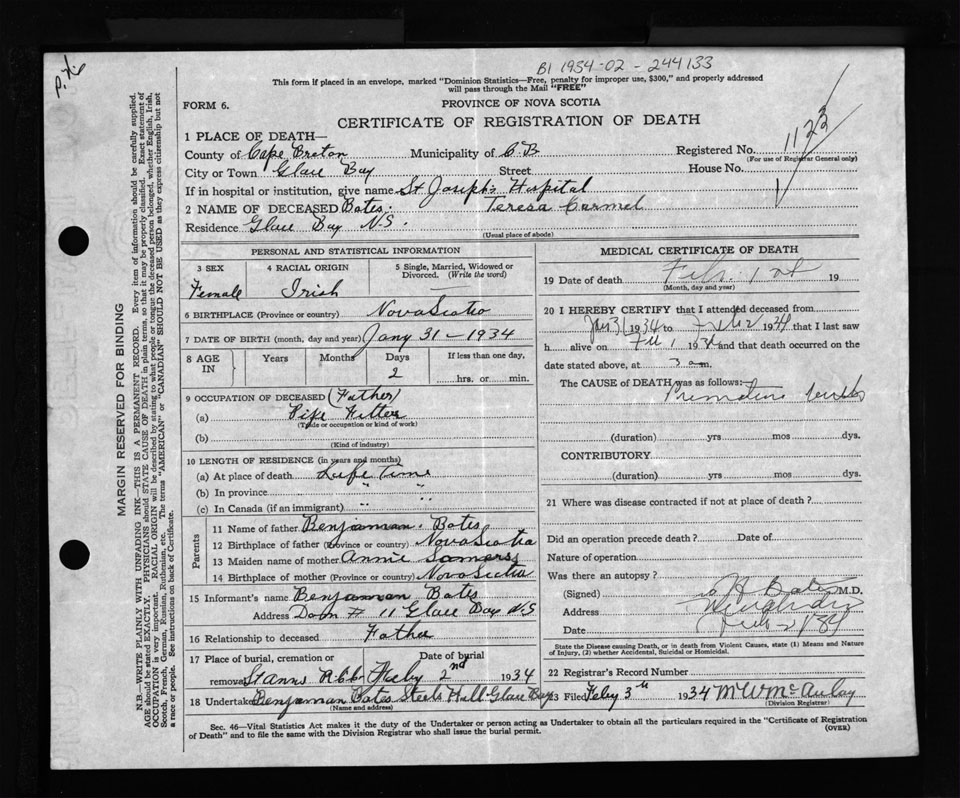 P. X6
B1 1934-02-244133
This form if placed in an envelope, marked "Dominion Statistics—Free, penalty for improper use, $300," and properly addressed
will pass through the Mail "FREE"
FORM 6. PROVINCE OF NOVA SCOTIA
CERTIFICATE OF REGISTRATION OF DEATH
1123
1 PLACE OF DEATH—
County of Cape Breton Municipality of C B Registered No.
(For use of Registrar General only)
City or Town Glace Bay Street House No.
If in hospital or institution, give name St Joseph's Hospital
2 NAME OF DECEASED Bates. Teresa Carmel
Residence Glace Bay N.S.
(Usual place of abode)
PERSONAL AND STATISTICAL INFORMATION
3 SEX 4 RACIAL ORIGIN 5 Single, Married, Widowed or Divorced. (Write the word)
Female Irish
6 BIRTHPLACE (Province or country) Nova Scotia
7 DATE OF BIRTH (month, day and year) Jany 31 - 1934
8 AGE IN Years Months Days If less than one day,
2 hrs. or min.
9 OCCUPATION OF DECEASED (Father)
(a) Pipe Fitter
(Trade or occupation or kind of work)
(b)
(Kind of industry)
10 LENGTH OF RESIDENCE (in years and months)
(a) At place of death Life Time
(b) In province " "
(c) In Canada (if an immigrant) " "
Parents
11 Name of father Benjaman. Bates
12 Birthplace of father (Province or country) Nova Scotia
13 Maiden name of mother Annie Somers
14 Birthplace of mother (Province or country) Nova Scotia
15 Informant's name Benjaman Bates
Address Dom # 11 Glace Bay N.S
16 Relationship to deceased Father
17 Place of burial, cremation or Date of burial
removal St Anns Feby 2nd 1934
18 Undertaker Benjaman Bates Steels Hill Glace Bay
(Name and address)
MEDICAL CERTIFICATE OF DEATH
19 Date of death Feb. 1st 19
(Month, day and year)
20 I HEREBY CERTIFY that I attended deceased from
Jan 31 1934 to Feb 2 1934 that I last saw
h alive on Feb 1 1934 and that death occurred on the
date stated above, at 3 a m.
The CAUSE OF DEATH was as follows:—
Premature
(duration) yrs mos dys.
CONTRIBUTORY
(duration) yrs mos dys.
21 Where was disease contracted if not at place of death?
Did an operation precede death? Date of
Nature of operation
Was there an autopsy?
(Signed) Bates M.D.
Address
Date Feb 2/34
State the Disease causing Death, or in death from Violent Causes, state (1) Means and Nature
of Injury, (2) whether Accidental, Suicidal or Homicidal.
22 Registrar's Record Number
23 Filed Feby 3rd 1934 M W McAulay
(Division Registrar)
Sec. 46—Vital Statistics Act makes it the duty of the Undertaker or person acting as Undertaker to obtain all the particulars required in the "Certificate of Registration
of Death" and to file the same with the Division Registrar who shall issue the burial permit.
(OVER)
MARGIN RESERVED FOR BINDING
N.B.—WRITE PLAINLY WITH UNFADING INK—THIS IS A PERMANENT RECORD. Every item of information should be carefully supplied.
AGE should be stated EXACTLY. PHYSICIANS should STATE CAUSE OF DEATH in plain terms, so that it may be properly classified. Exact statement of
OCCUPATION is very important. RACIAL ORIGIN will be described by stating to what people or tongue the deceased person belonged, whether English, Irish,
Scotch, French, German, Russian, Ruthenian, etc. The terms "AMERICAN" or "CANADIAN" SHOULD NOT BE USED as they express citizenship but not
a race or people. See instructions on back of Certificate.